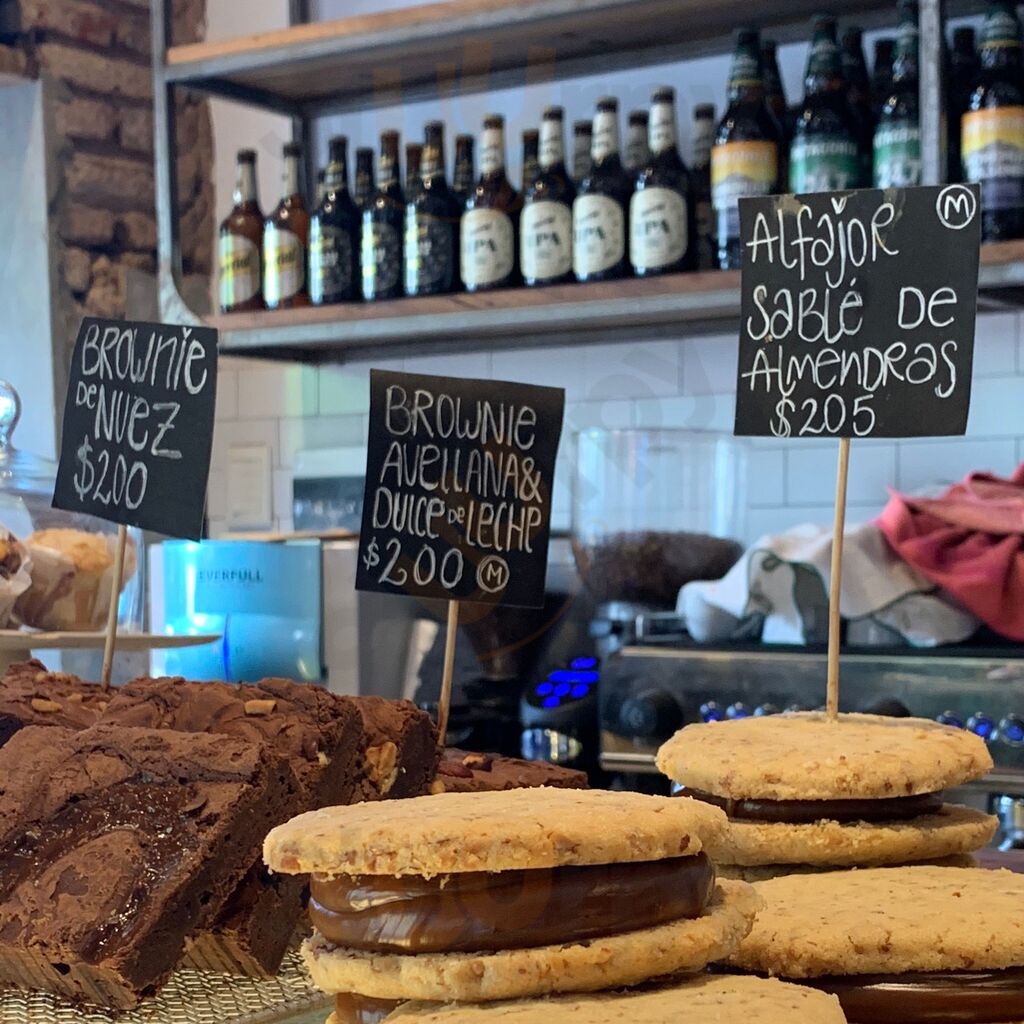 BROWNIE
DE NUEZ
$200
BROWNIE
AVELLANA &
DULCE DE LECHE
$200 M
M
ALFAJOR
SABLÉ DE
ALMENDRAS
$205
EVERFULL
IPA
IPA
IPA